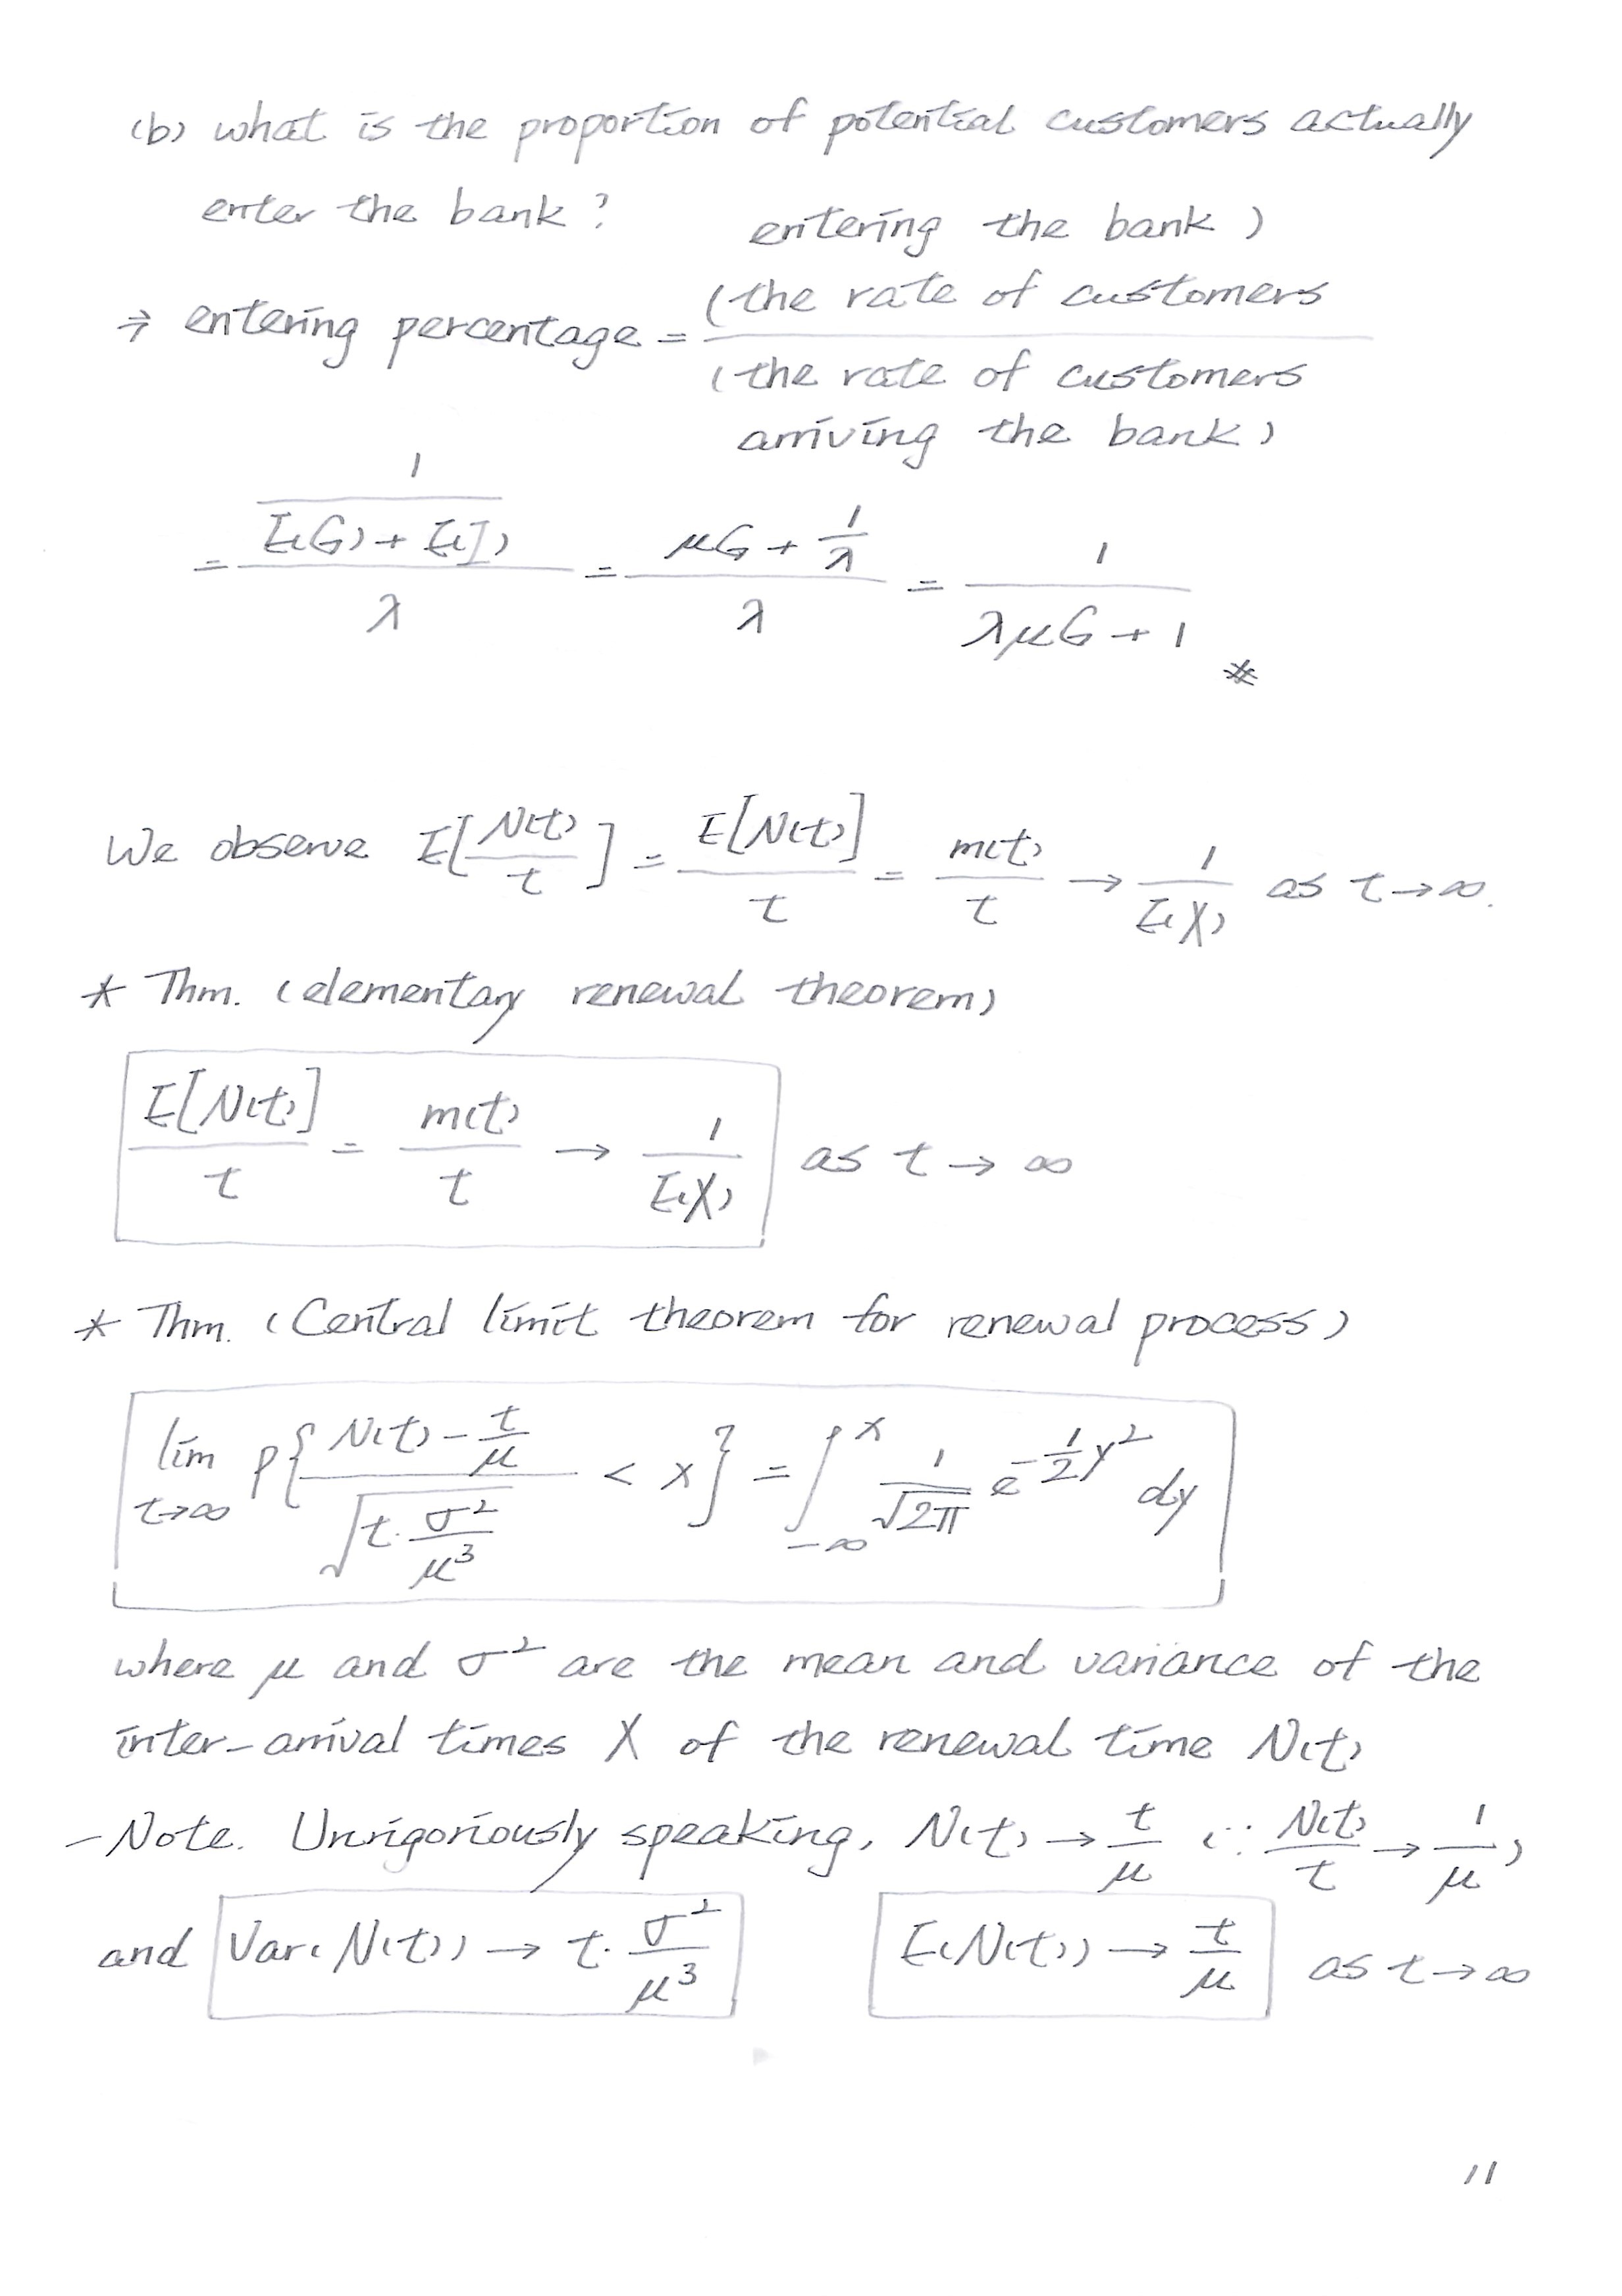 (b) what is the proportion of potential customers actually
enter the bank?
entering the bank)
(the rate of customers
→ entering percentage =
(the rate of customers
arriving the bank)
= (1/(E(G) + E(I)))/λ = (μG + 1/λ)/λ = 1/(λμG + 1) #
We observe E[N(t)/t] = E[N(t)]/t = m(t)/t → 1/E(X) as t → ∞.
* Thm. (elementary renewal theorem)
E[N(t)]/t = m(t)/t → 1/E(X) as t → ∞
* Thm. (Central limit theorem for renewal process)
lim t→∞ P{(N(t) - t/μ)/√(t·σ²/μ³) < x} = ∫_{-∞}^{x} 1/√2π e^{-1/2 y²} dy
where μ and σ² are the mean and variance of the
inter-arrival times X of the renewal time N(t)
- Note. Unrigoriously speaking, N(t) → t/μ (∵ N(t)/t → 1/μ)
and Var(N(t)) → t·σ²/μ³ E(N(t)) → t/μ as t → ∞
11